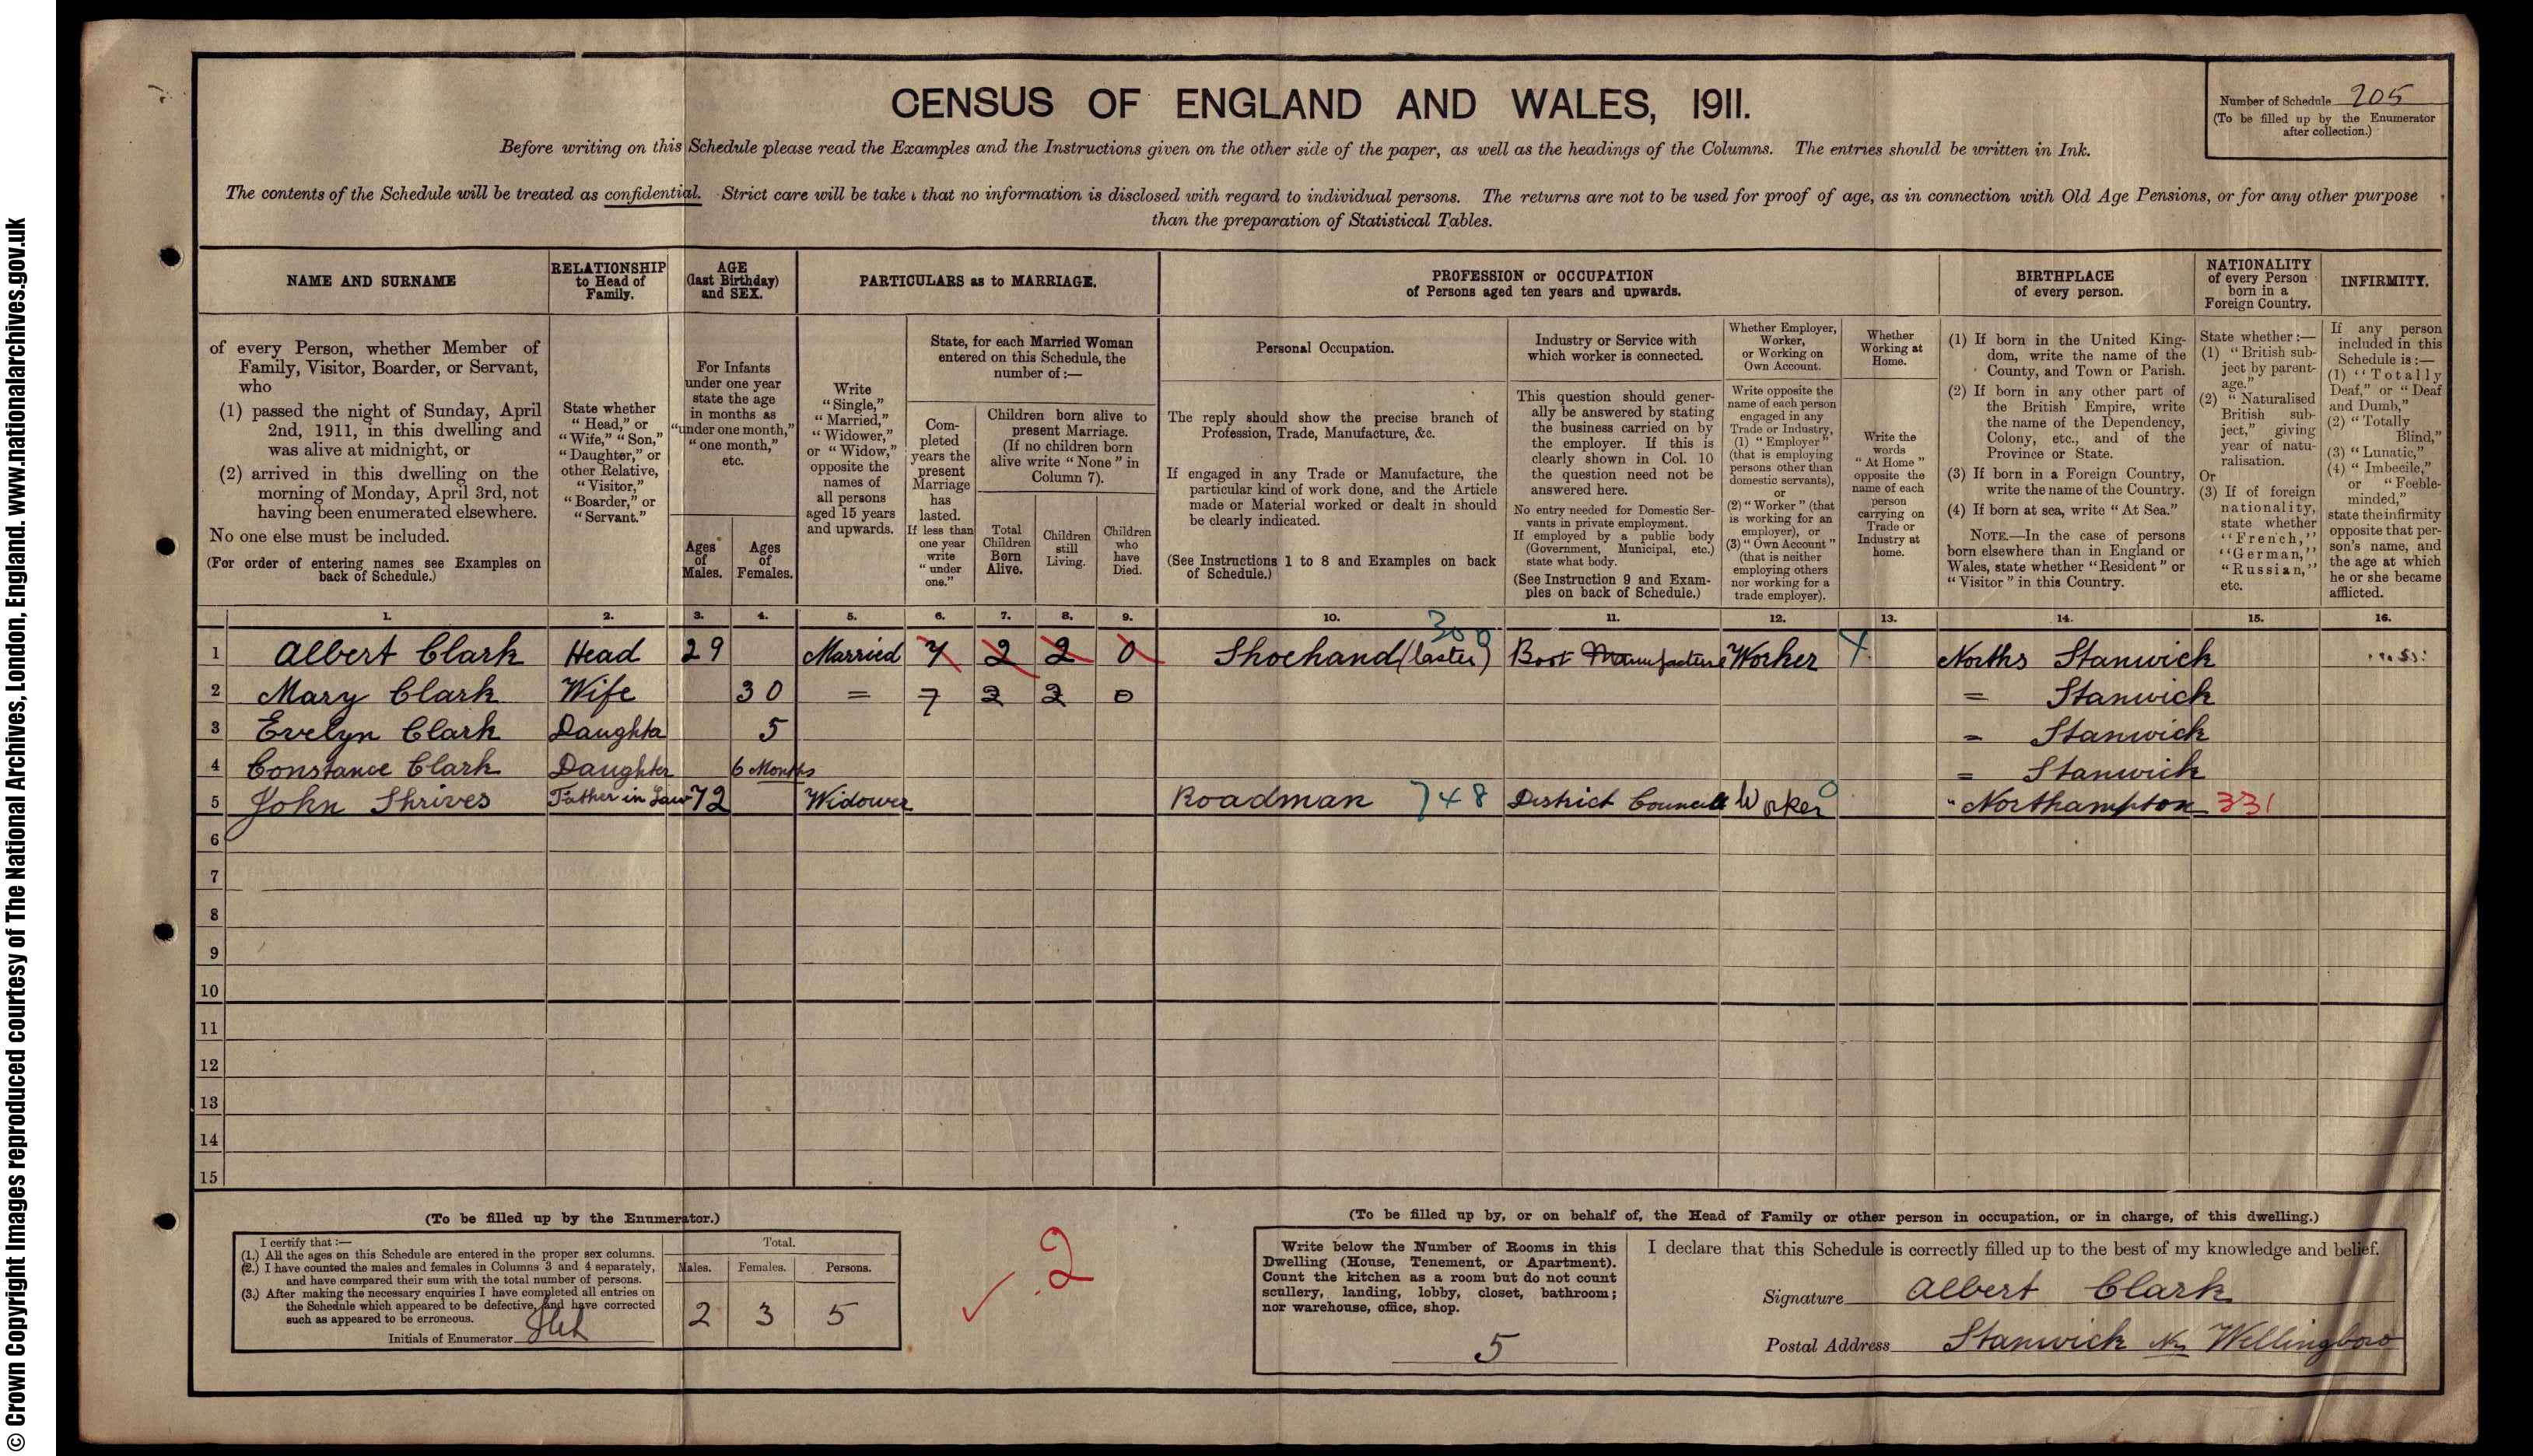 © Crown Copyright Images reproduced courtesy of The National Archives, London, England. www.nationalarchives.gov.uk
CENSUS OF ENGLAND AND WALES, 1911.
Number of Schedule 205
(To be filled up by the Enumerator
after collection.)
Before writing on this Schedule please read the Examples and the Instructions given on the other side of the paper, as well as the headings of the Columns. The entries should be written in Ink.
The contents of the Schedule will be treated as confidential. Strict care will be take that no information is disclosed with regard to individual persons. The returns are not to be used for proof of age, as in connection with Old Age Pensions, or for any other purpose
than the preparation of Statistical Tables.
NAME AND SURNAME
of every Person, whether Member of
Family, Visitor, Boarder, or Servant,
who
(1) passed the night of Sunday, April
2nd, 1911, in this dwelling and
was alive at midnight, or
(2) arrived in this dwelling on the
morning of Monday, April 3rd, not
having been enumerated elsewhere.
No one else must be included.
(For order of entering names see Examples on
back of Schedule.)
RELATIONSHIP
to Head of
Family.
State whether
"Head," or
"Wife," "Son,"
"Daughter," or
other Relative,
"Visitor,"
"Boarder," or
"Servant."
AGE
(last Birthday)
and SEX.
For Infants
under one year
state the age
in months as
"under one month,"
"one month,"
etc.
Ages
of
Males.
Ages
of
Females.
PARTICULARS as to MARRIAGE.
Write
"Single,"
"Married,"
"Widower,"
or "Widow,"
opposite the
names of
all persons
aged 15 years
and upwards.
State, for each Married Woman
entered on this Schedule, the
number of:—
Com-
pleted
years the
present
Marriage
has
lasted.
If less than
one year
write
"under
one."
Children born alive to
present Marriage.
(If no children born
alive write "None" in
Column 7).
Total
Children
Born
Alive.
Children
still
Living.
Children
who
have
Died.
PROFESSION or OCCUPATION
of Persons aged ten years and upwards.
Personal Occupation.
The reply should show the precise branch of
Profession, Trade, Manufacture, &c.
If engaged in any Trade or Manufacture, the
particular kind of work done, and the Article
made or Material worked or dealt in should
be clearly indicated.
(See Instructions 1 to 8 and Examples on back
of Schedule.)
Industry or Service with
which worker is connected.
This question should gener-
ally be answered by stating
the business carried on by
the employer. If this is
clearly shown in Col. 10
the question need not be
answered here.
No entry needed for Domestic Ser-
vants in private employment.
If employed by a public body
(Government, Municipal, etc.)
state what body.
(See Instruction 9 and Exam-
ples on back of Schedule.)
Whether Employer,
Worker,
or Working on
Own Account.
Write opposite the
name of each person
engaged in any
Trade or Industry,
(1) "Employer"
(that is employing
persons other than
domestic servants),
or
(2) "Worker" (that
is working for an
employer), or
(3) "Own Account"
(that is neither
employing others
nor working for a
trade employer).
Whether
Working at
Home.
Write the
words
"At Home"
opposite the
name of each
person
carrying on
Trade or
Industry at
home.
BIRTHPLACE
of every person.
(1) If born in the United King-
dom, write the name of the
County, and Town or Parish.
(2) If born in any other part of
the British Empire, write
the name of the Dependency,
Colony, etc., and of the
Province or State.
(3) If born in a Foreign Country,
write the name of the Country.
(4) If born at sea, write "At Sea."
NOTE.—In the case of persons
born elsewhere than in England or
Wales, state whether "Resident" or
"Visitor" in this Country.
NATIONALITY
of every Person
born in a
Foreign Country.
State whether:—
(1) "British sub-
ject by parent-
age."
(2) "Naturalised
British sub-
ject," giving
year of natu-
ralisation.
Or
(3) If of foreign
nationality,
state whether
"French,"
"German,"
"Russian,"
etc.
INFIRMITY.
If any person
included in this
Schedule is:—
(1) "Totally
Deaf," or "Deaf
and Dumb,"
(2) "Totally
Blind,"
(3) "Lunatic,"
(4) "Imbecile,"
or "Feeble-
minded,"
state the infirmity
opposite that per-
son's name, and
the age at which
he or she became
afflicted.
1. 2. 3. 4. 5. 6. 7. 8. 9. 10. 11. 12. 13. 14. 15. 16.
300
1 Albert Clark Head 29 Married 7 2 2 0 Shoehand (laster) Boot Manufacture Worker Norths Stanwick
2 Mary Clark Wife 30 = 7 2 2 0 = Stanwick
3 Evelyn Clark Daughter 5 = Stanwick
4 Constance Clark Daughter 6 Months = Stanwick
5 John Shrives Father in Law 72 Widower Roadman 748 District Council Worker 0 " Northampton 331
6
7
8
9
10
11
12
13
14
15
(To be filled up by the Enumerator.)
I certify that:—
(1.) All the ages on this Schedule are entered in the proper sex columns.
(2.) I have counted the males and females in Columns 3 and 4 separately,
and have compared their sum with the total number of persons.
(3.) After making the necessary enquiries I have completed all entries on
the Schedule which appeared to be defective, and have corrected
such as appeared to be erroneous.
Initials of Enumerator
Total.
Males. Females. Persons.
2 3 5
2
(To be filled up by, or on behalf of, the Head of Family or other person in occupation, or in charge, of this dwelling.)
Write below the Number of Rooms in this
Dwelling (House, Tenement, or Apartment).
Count the kitchen as a room but do not count
scullery, landing, lobby, closet, bathroom;
nor warehouse, office, shop.
5
I declare that this Schedule is correctly filled up to the best of my knowledge and belief.
Signature Albert Clark
Postal Address Stanwick Nr Wellingboro